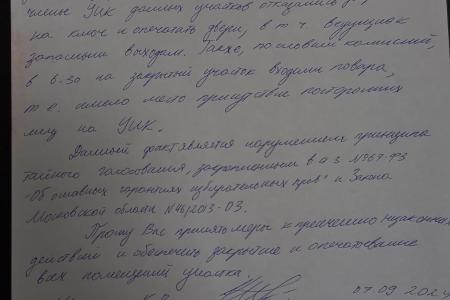 члены УИК данных участков отказались
на ключ и опечатать двери, в т.ч. ведущие к
запасным выходам. Также, по словам комиссий,
в 6-30 на закрытый участок входили повара,
т.е. имело место присутствие посторонних
лиц на УИК.
Данный факт является нарушением принципа
тайного голосования, закрепленным в ст 3 №67-ФЗ
"Об основных гарантиях избирательных прав" и Закона
Московской области №46/2013-ОЗ.
Прошу Вас принять меры к пресечению незаконных
действий и обеспечить закрытие и опечатование
всех помещений участка.
07.09.2024